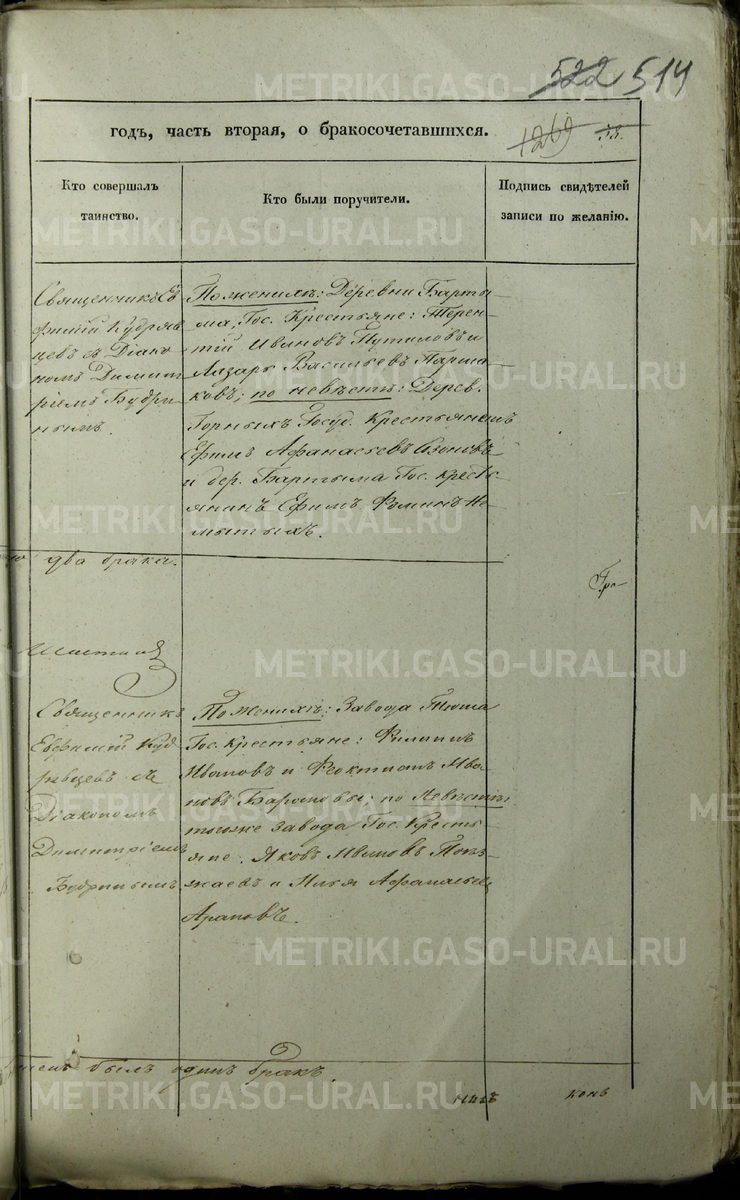 522 514
годъ, часть вторая, о бракосочетавшихся.
1269 33.
Кто совершалъ
таинство.
Кто были поручители.
Подпись свидѣтелей
записи по желанію.
Священникъ Ев
фимій Кудряв
цевъ съ Діако
номъ Димит
ріемъ Будри
нымъ.
По женихѣ: Деревни Барты-
ма, Гос. Крестьяне: Терен-
тій Ивановъ Путиловъ и
Лазарь Васильевъ Парша-
ковъ; по невѣстѣ: Дерев.
Горныхъ Госуд. Крестьянинъ
Ефимъ Афанасьевъ Озоновъ
и дер. Бартыма Гос. кресть-
янинъ Ефимъ Фоминъ Не-
мытыхъ.
два брака.
Гра-
Священникъ
Евфимій Куд
рявцевъ съ
Діакономъ
Димитріемъ
Будринымъ
По женихѣ: Завода Тюша
Гос. крестьяне: Филиппъ
Ивановъ и Феоктистъ Ива-
новъ Барановы; по Невѣстѣ:
тогоже завода Гос. Кресть-
яне: Яковъ Ивановъ
и Илья Афанасьевъ
Араповъ.
былъ одинъ бракъ.
конъ
METRIKI.GASO-URAL.RU